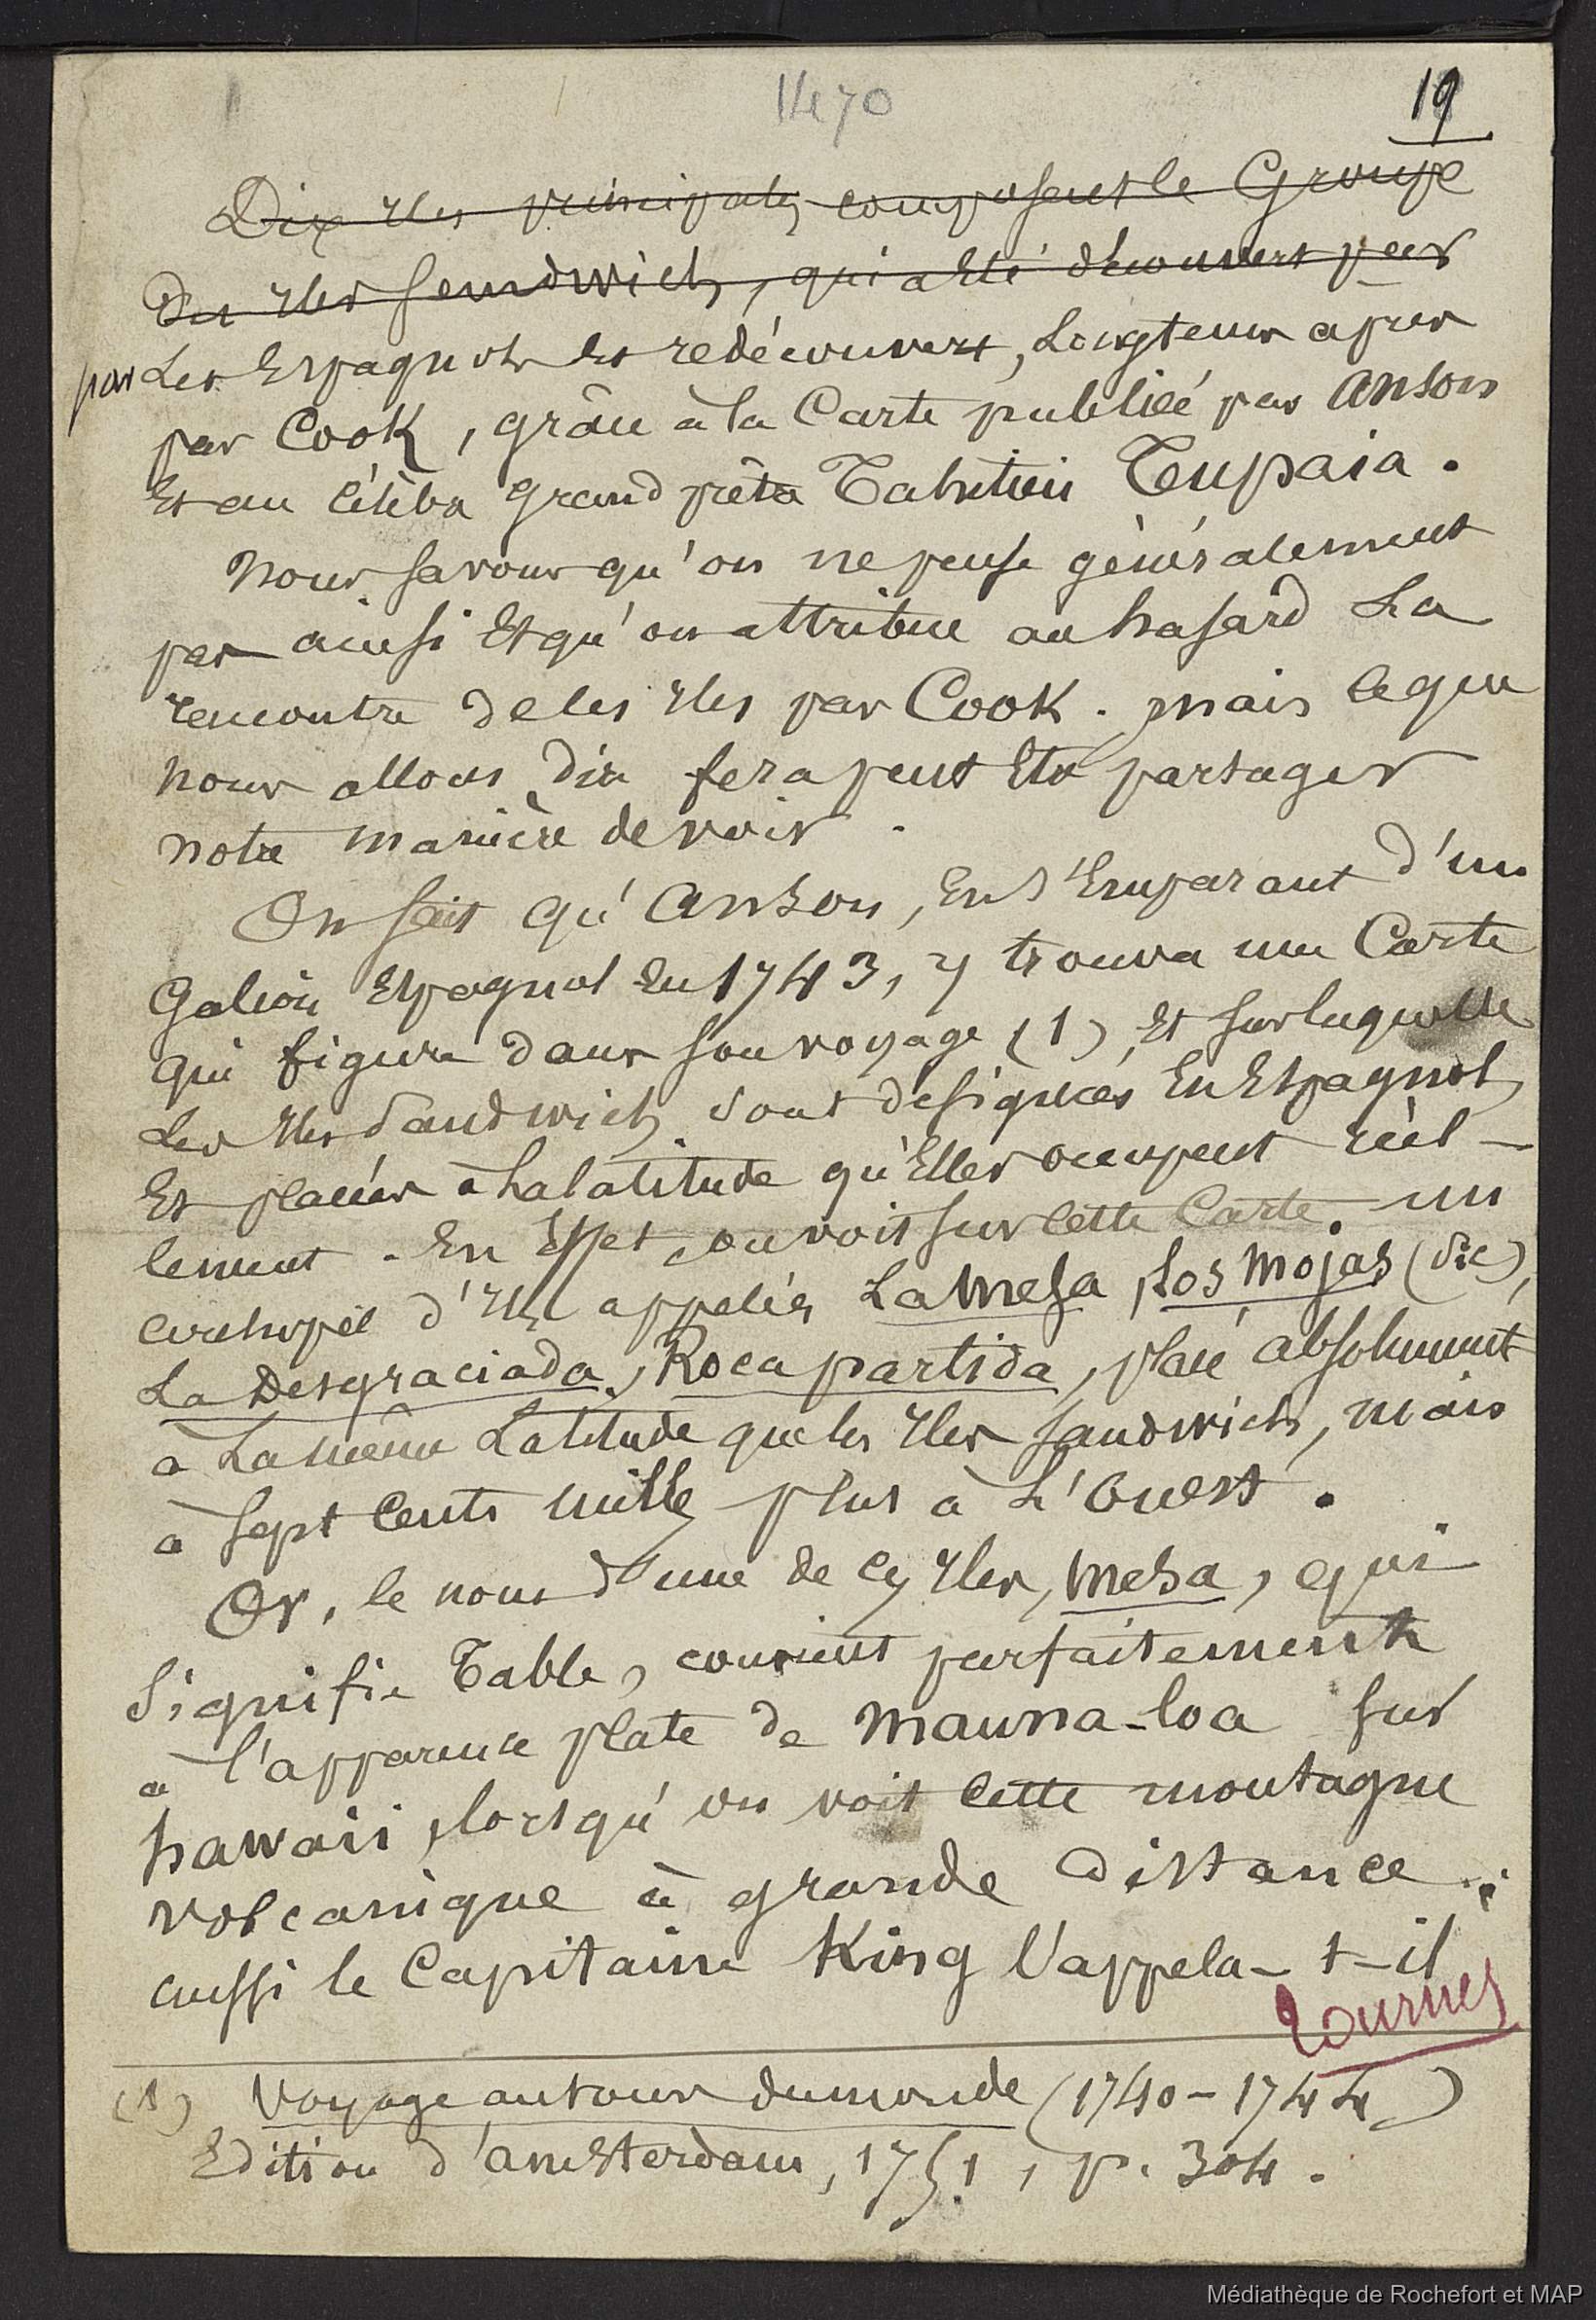 1470
19
Dix Iles principales composent le Groupe
des Iles Sandwich, qui a Eté découvert par
par Les Espagnols Et redécouvert, Longtems après
par Cook, grâce à la Carte publiée par Anson
Et au Célèbre grand prêtre Tahitien Tupaia.
Nous savons qu'on ne pense généralement
pas ainsi Et qu'on attribue au hasard La
rencontre de ces Iles par Cook. mais ce que
nous allons dire fera peut Etre partager
notre manière de voir.
On sait qu'Anson, En s'Emparant d'un
Galion Espagnol En 1743, y trouva une Carte
qui figure dans son voyage (1), Et sur laquelle
Les Iles Sandwich sont désignées En Espagnol,
Et placées à La latitude qu'Elles occupent réel-
lement. En Effet, on voit sur cette Carte, un
archipel d'Iles appelées La Mesa, Los Mojas (Sic),
La Desgraciada, Roca partida, placé absolument
à La même Latitude que les Iles Sandwich, mais
à sept cents milles plus à L'Ouest.
Or, le nom d'une de ces Iles, Mesa, qui
signifie Table, convient parfaitement
à l'apparence plate de Mauna-loa sur
hawaii, lorsqu'on voit cette montagne
volcanique à grande distance;
aussi le Capitaine King l'appela-t-il
tournez
(1) Voyage autour du monde (1740-1744)
Edition d'Amsterdam, 1751, p. 304.
Médiathèque de Rochefort et MAP